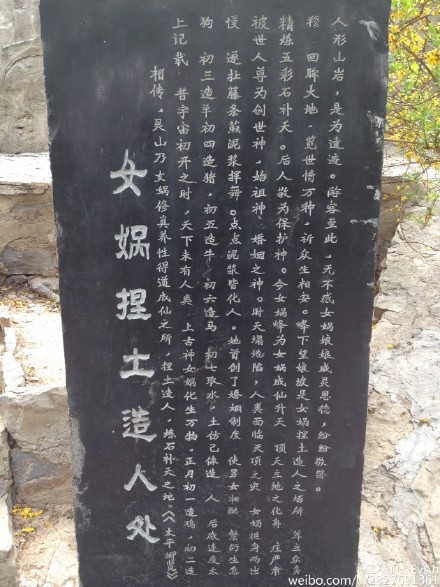 女娲捏土造人处
相传，灵山乃女娲修真养性得道成仙之所，捏土造人，炼石补天之地。《太平御览》
上记载：昔宇宙初开之时，天下未有人类，上古神女娲化生万物，正月初一造鸡，初二造
狗，初三造羊，初四造猪，初五造牛，初六造马，初七取水，土仿己像造人，后感速度太
慢，遂扯藤条蘸泥浆挥舞。点点泥浆皆化人。她首创了婚姻制度，使男女相配，繁衍生息
被世人尊为创世神，始祖神，婚姻之神。时天塌地陷，人类面临灭顶之灾，女娲挺身而出
精炼五彩石补天。后人敬为保护神。今女娲峰为女娲成仙升天，顶天立地之化身，庄严肃
穆，回眸大地，览世情万种，祈众生相安。峰下望娘坡是女娲捏土造人之场所，众多
人形山岩，是为遗迹。游客至此，无不感女娲娘娘威灵恩德，纷纷敬祭。